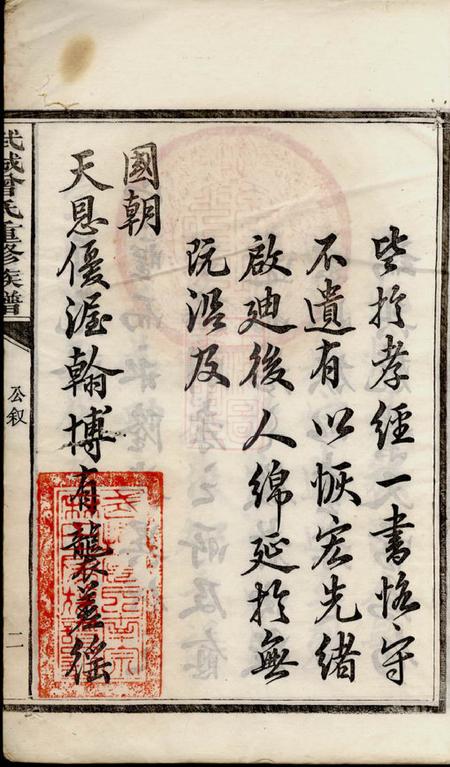 皆於孝經一書恪守
不遺有以恢宏先緒
啟廸後人綿延於無
既溯及
國朝
天恩優渥翰博有襲差徭
武城曾氏重修族譜
公叙
二